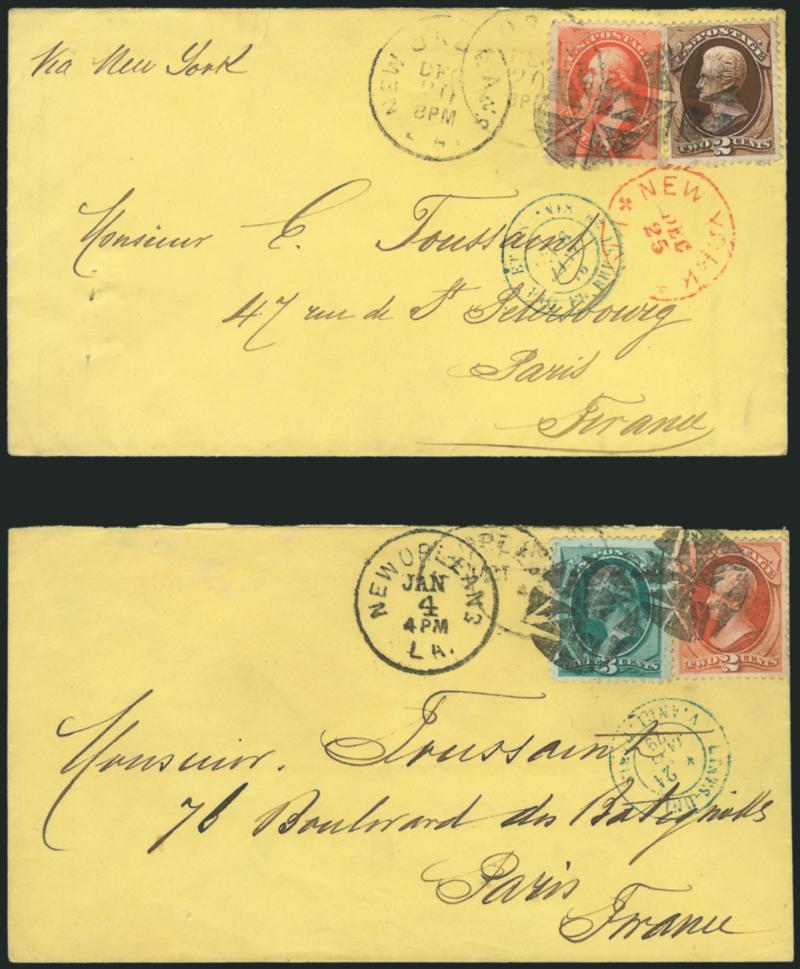 Via New York
NEW ORLEANS
DEC
20
8PM
LA.
U.S. POSTAGE
U.S. POSTAGE
TWO 2 CENTS
NEW YORK
DEC
25
Monsieur E. Toussaint
47 rue de St Petersbourg
Paris
France
NEW ORLEANS
JAN
4
4 PM
LA.
U.S. POSTAGE
THREE 3 CENTS
TWO 2 CENTS
24
79
Monsieur. Toussaint
76 Boulevard des Batignolles
Paris
France